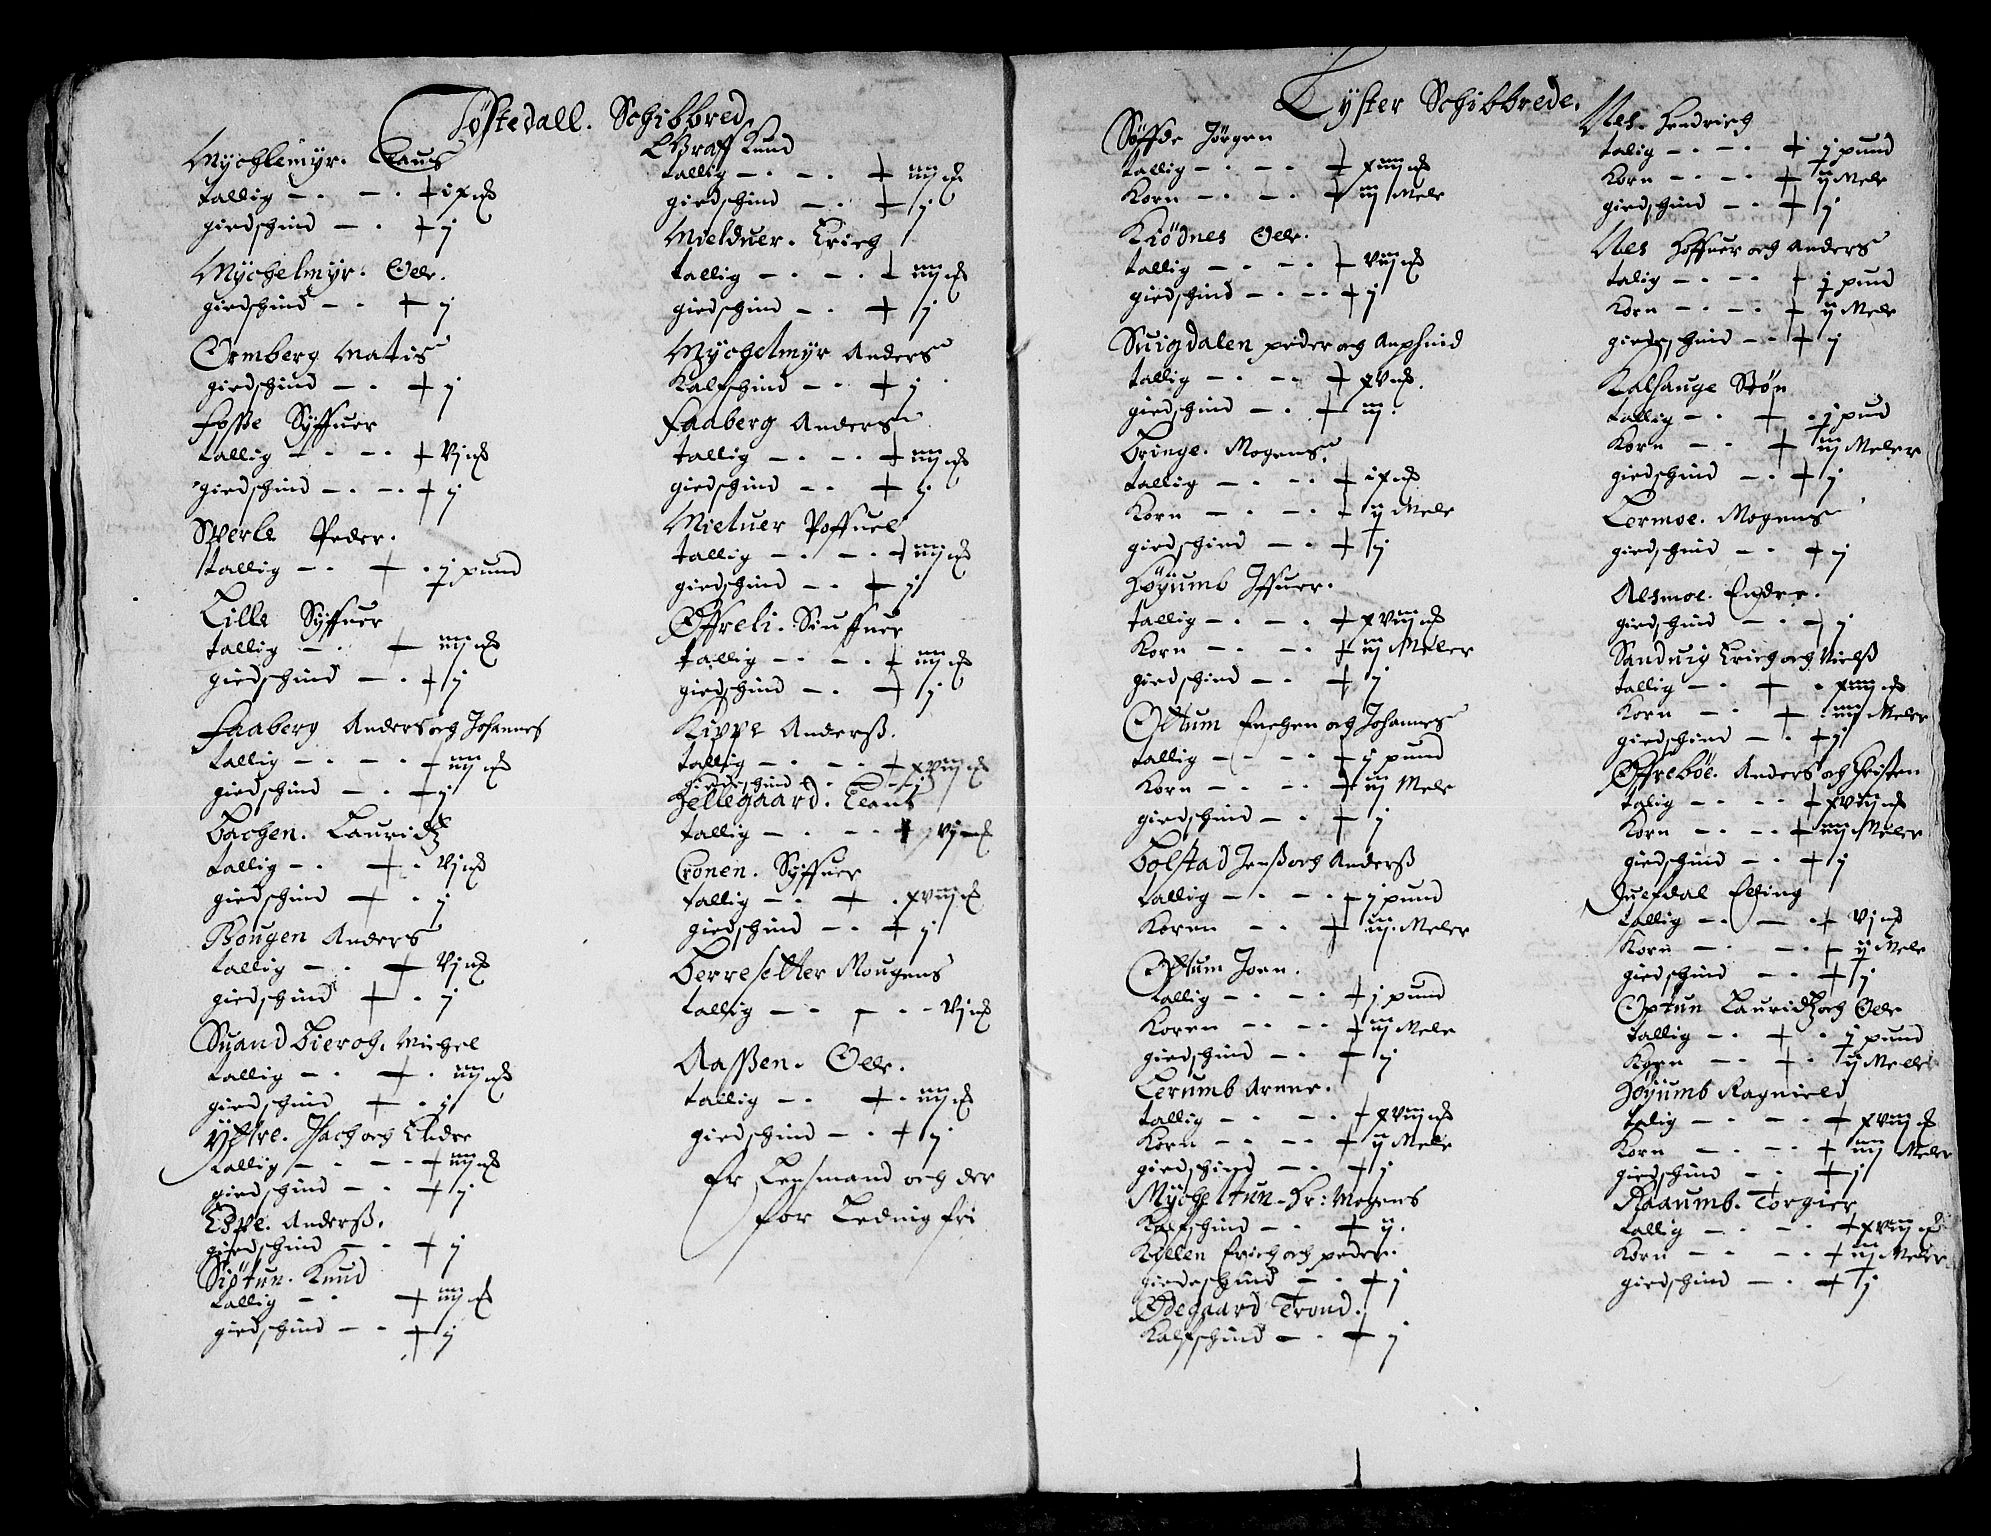 Jøstedall. Schibbred
Mÿchlemÿr. Claus
tallig — . — . + ix mk
giedschind — . + j
Mÿchelmÿr. Oelr.
giedschind — . + j
Ormberg Matis
giedschind — . + j
Fosse Sÿffuer
tallig — . — . + vj mk
giedschind — . — . + j
Sperle Peder.
tallig — . + . j pund
Lille Sÿffuer
tallig — . + iiij mk
giedschind — . + j
Faaberg Anders och Johannes
tallig — . — . + iiij mk
giedschind — . + j
Bachen. Lauridtz
tallig — . + . vj mk
giedschind + . j
Bougen Anders
tallig — . + vj mk
giedschind + . j
Suand Bier och. Michel
tallig — . + . iiij mk
giedschind + . j
Ÿttre. Isach och Elider
tallig — . — . + iiij mk
giedschind — . + j
Espe. Anderss.
giedschind — . + j
Siøtun. Knud
tallig — . + iiij mk
giedschind — . + j
Graff Knud
tallig — . — . + iiij mk
giedschind — . + j
Mielduer. Erich
tallig — . — . + iiij mk
giedschind — . + j
Mÿchelmÿr Anders
Kalfschind — . + j
Faaberg Anders
tallig — . — . + iiij mk
giedschind — . + j
Mietuer Poffuel
tallig — . — . + iiij mk
giedschind — . + j
Øffreli. Siuffuer
tallig — . — . + iiij mk
giedschind — . + j
Kippe Anderss.
tallig — . — . + xviij mk
giedschind — . — j
Hellegaard. Claus
tallig — . — . + vj mk
Cronen. Sÿffuer
tallig — . + . xviij mk
giedschind — . + j
Berresetter Mougens
tallig — . — . - vj mk
Aassen. Oelr.
tallig — . + . iiij mk
giedschind — . + j
Er Lensmand och der
for Lednig fri
Lÿster Schibbrede.
Søffde Jørgen
tallig — . — . + xiiij mk
Korn — . — . + iij Mele
Kiødnes Oelr.
tallig — . — . + viij mk
giedschind — . — . + j
Suigdalen peder och Anphind
tallig — . — . + xv mk.
giedschind — . + iij.
Bringe. Mogens.
tallig — . — . + ix mk
Korn — . — . + ij Mele
giedschind — . + j
Høÿumb Iffuer.
tallig — . — . + xviij mk
Korn — . — . + iij Meler
giedschind — . + j
Ottum Enchen och Johannes
tallig — . — . + j pund
Korn — . — . + iij Mele
giedschind — . + j
Bolstad Jenss och Anderss
tallig — . — . + j pund
Koren — . + iij. Meler
Ottum Joen.
tallig — . — . + j pund
Koren — . — . + iij Mele
giedschind — . + j
Lerumb Arnne.
tallig — . — . + xviij mk
Korn — . — . + ij Mele
giedschind — . + j
Mÿcheltun. Hr: Mogens
Kalfschind — . + ij.
Kollen Erich och peder.
giedeschind — . + j
Ødegaard Trond.
Kalfschind — . + j
Nes. Hendrich
talig — . — . + j pund
Korn — . — . + ij Mele
giedschind — . + j
Nes Hoffuer och Anders
talig — . — . + j pund
Korn — . — . + ij Mele
giedeschind — . + j
Kalhauge Støn
tallig — . + . j pud
Korn — . + iij Meler
giedschind — . + j
Lermoe. Mogens
giedschind — . + j
Alsmoe. Endre.
giedschind — . + j
Sanduig Erich och Nielss
tallig — . + . xiiij mk
Korn — . + . iiij Meler
giedschind — . + j
Øffreböe. Anders och Christen
talig — . — . + xviij mk
Korn — . — . + iiij. Meler
giedschind — . + j
Juefdal Elling
tallig — . — . + vj mk
Korn — . — . + ij Mele
giedschind — . + j
Optun Lauridtz och Oelr
tallig — . + . j pund
Korn — . + . ij Meler
Høÿumb Ragnield
talig — . — . + xviij mk
Korn — . — . + iiij Meler
giedschind — . + j
Raaumb. Torgier
tallig — . — . + xviij mk
Korn — . — . + iij Meler
giedschind — . + j